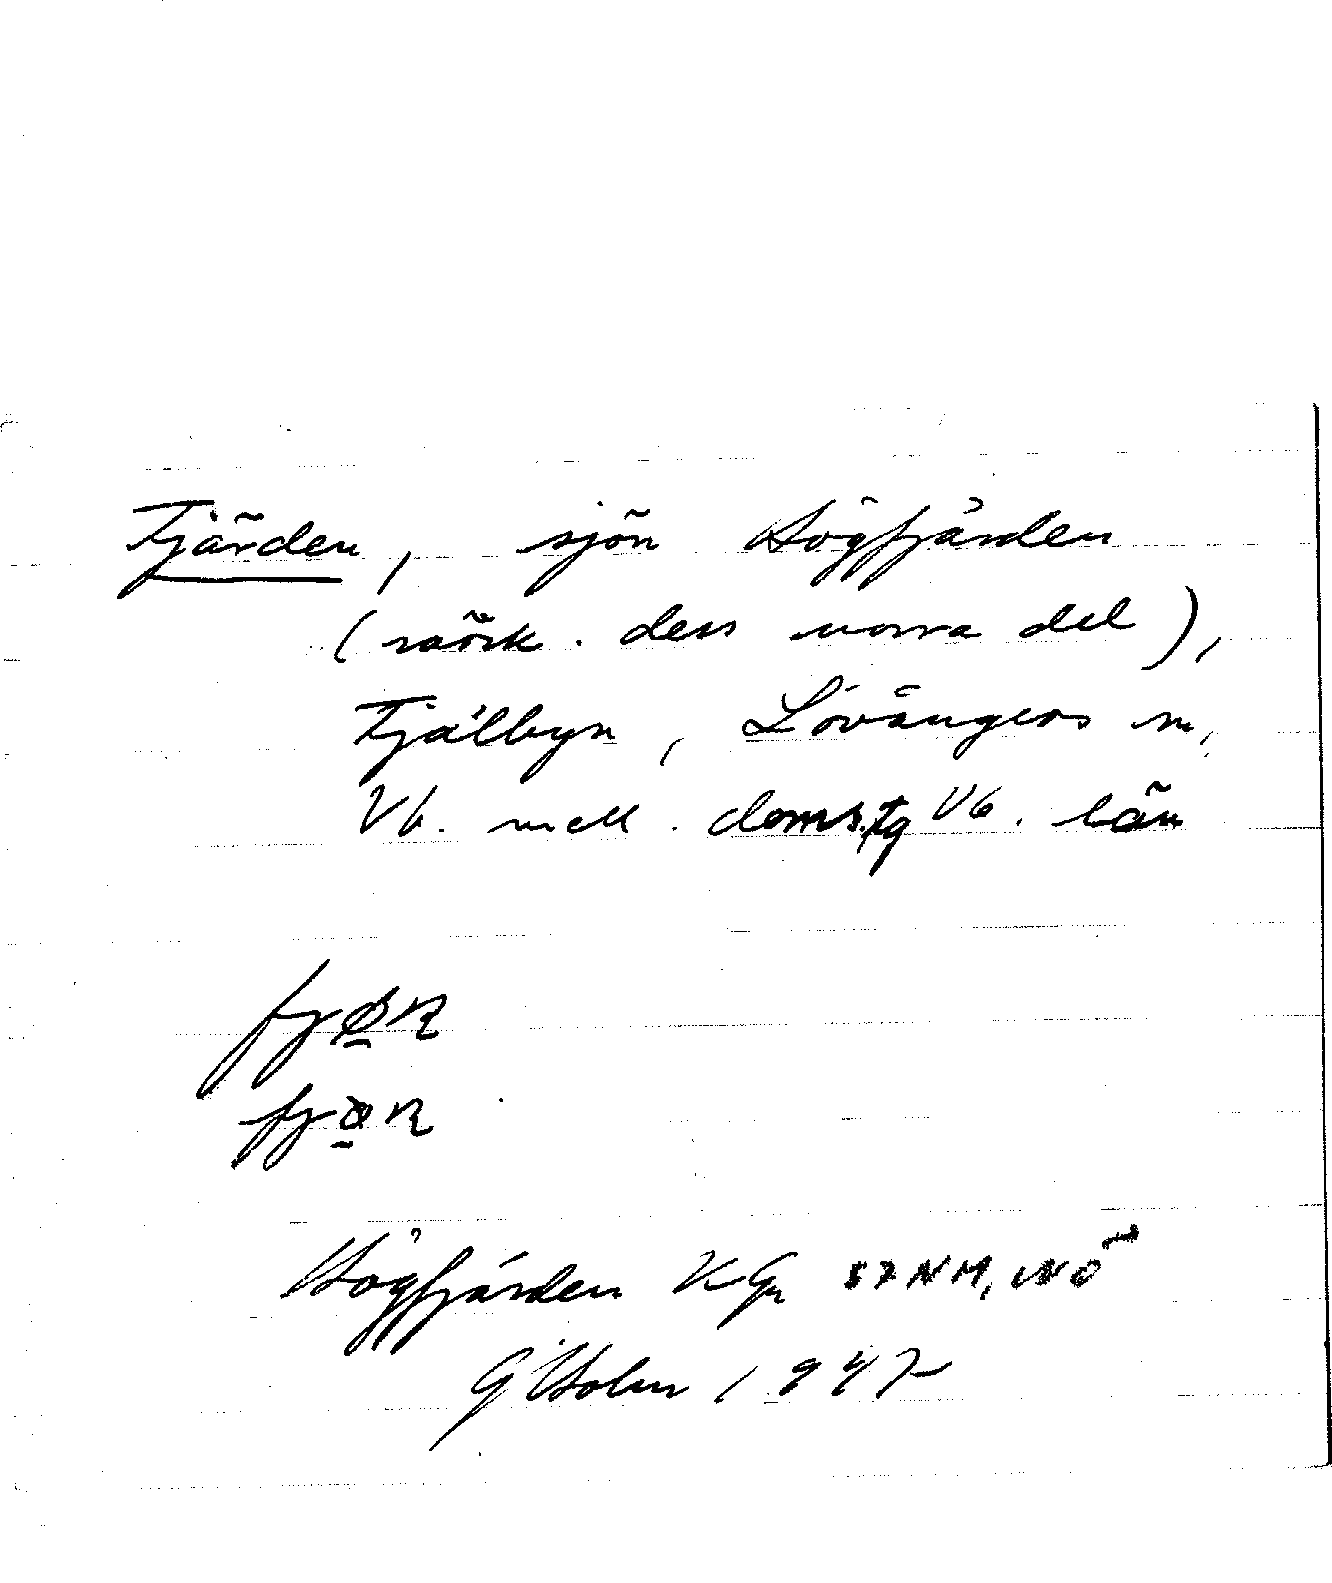 Fjärden, sjön Högfjärden
(särsk. dess norra del),
Fjälbyn, Lövångers sn,
Vb. mell. doms.tg Vb. län
Högfjärden KGn 57 NM, NÖ
G Holm 1947